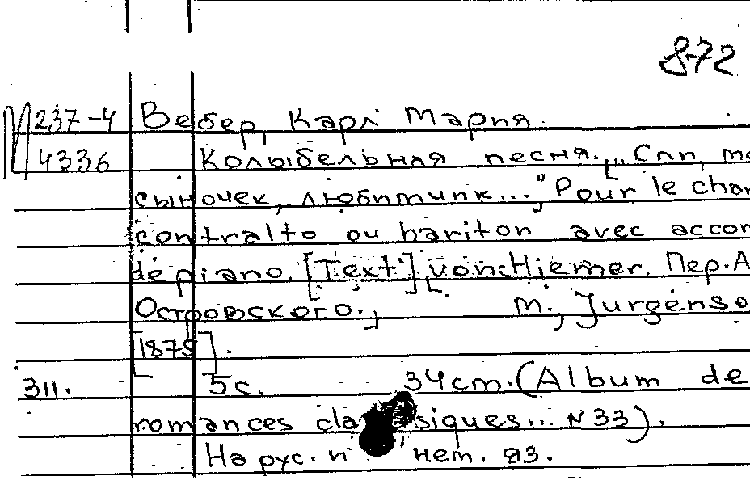 872
М 237-4 Вебер, Карл Мария.
4336 Колыбельная песня. „Спи, мо
сыночек, любимчик...", Pour le chan
contralto ou bariton avec accom
de piano. [Text] von: Hiemer. Пер. А
Островского.; m., Jurgenso
[1875].
311. 5с. 34cm. (Album de
romances classiques... N 33).
На рус. и нем. яз.